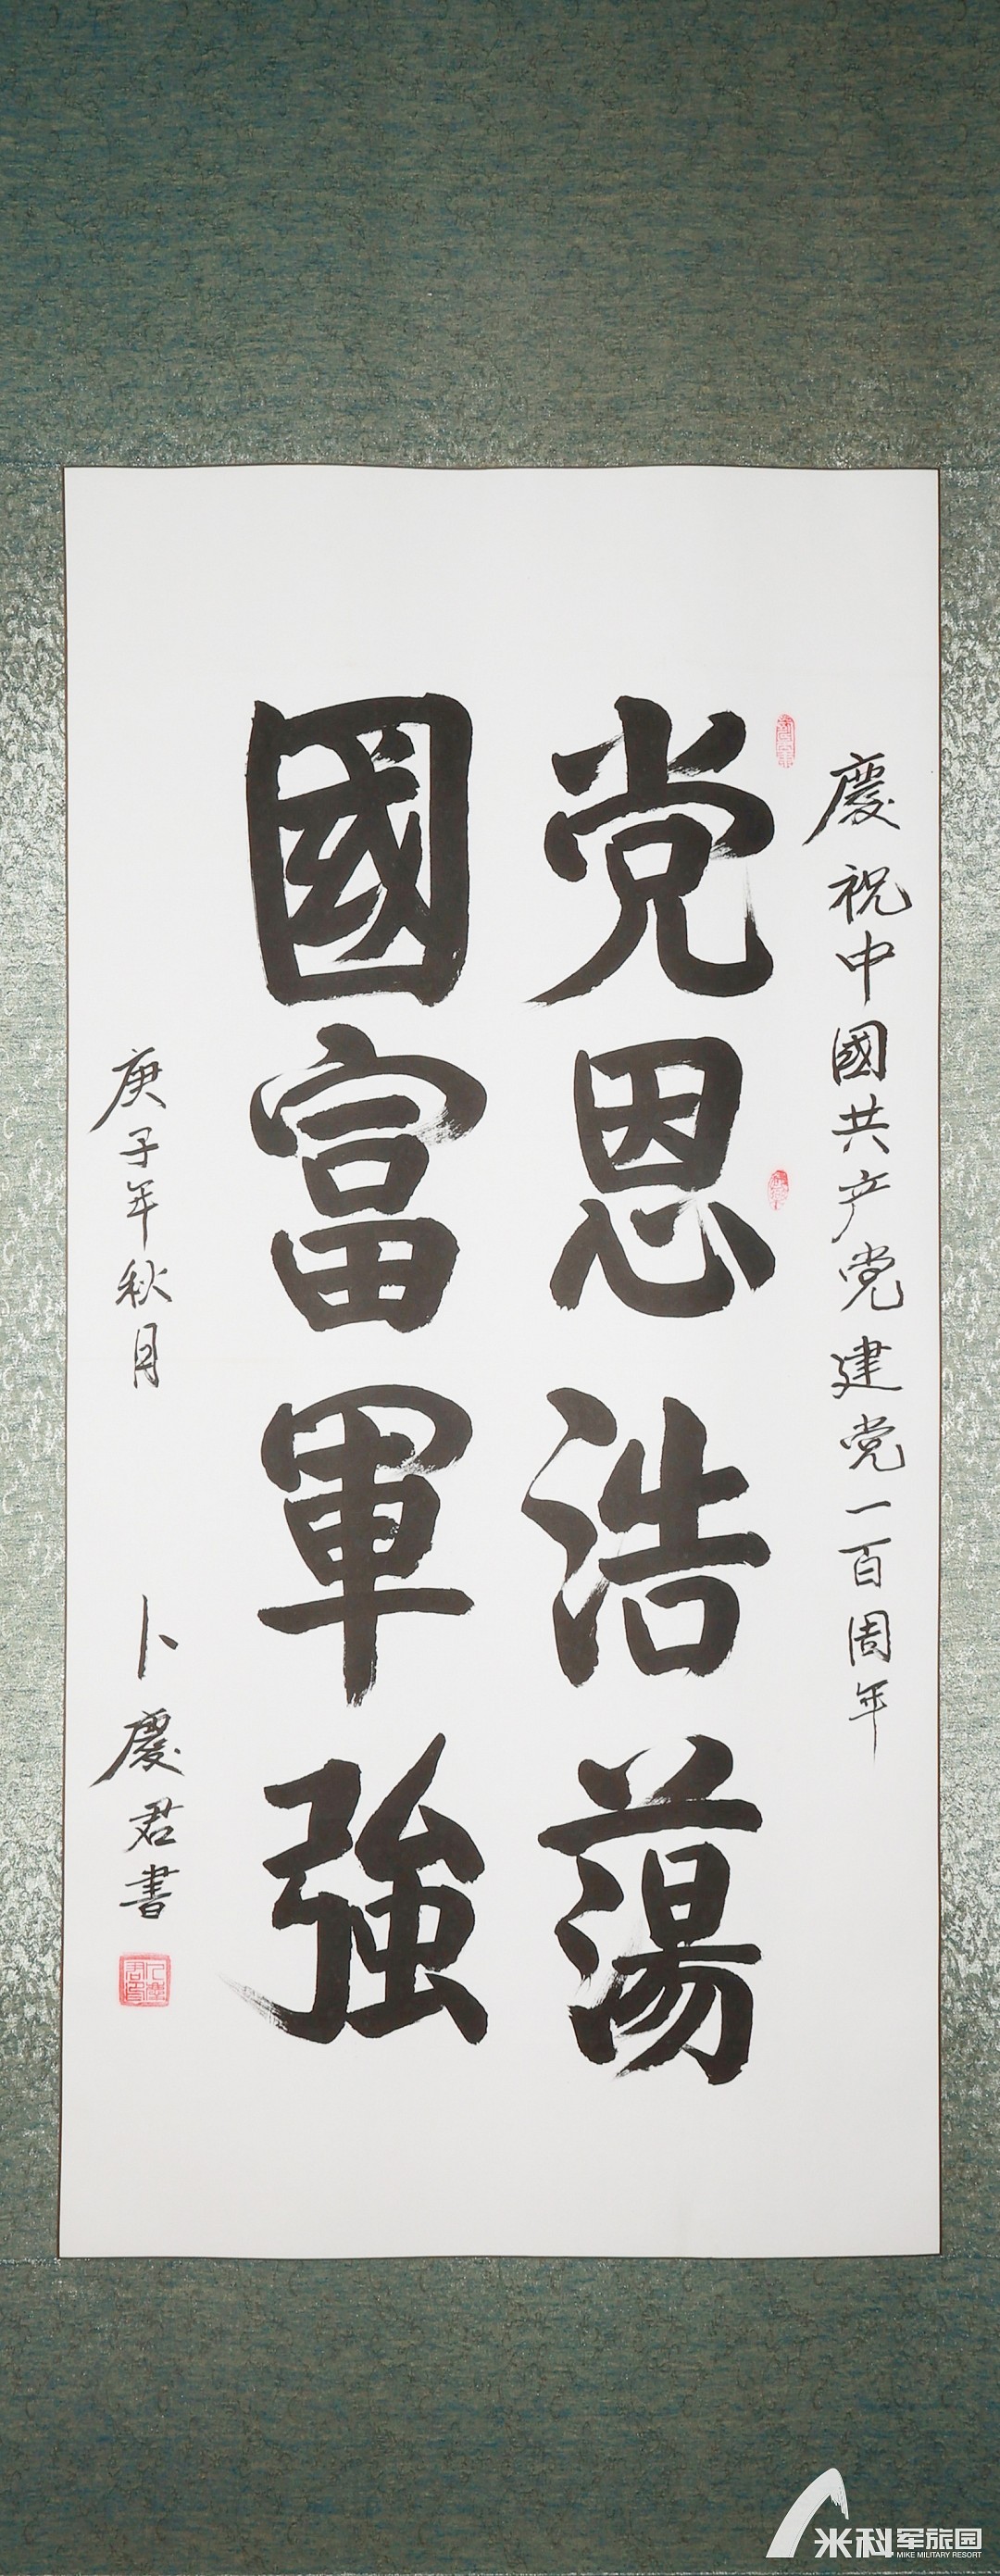 慶祝中國共产党建党一百周年
党恩浩蕩
國富軍強
庚子年秋月
卜慶君書
米科军旅园
MIKE MILITARY RESORT